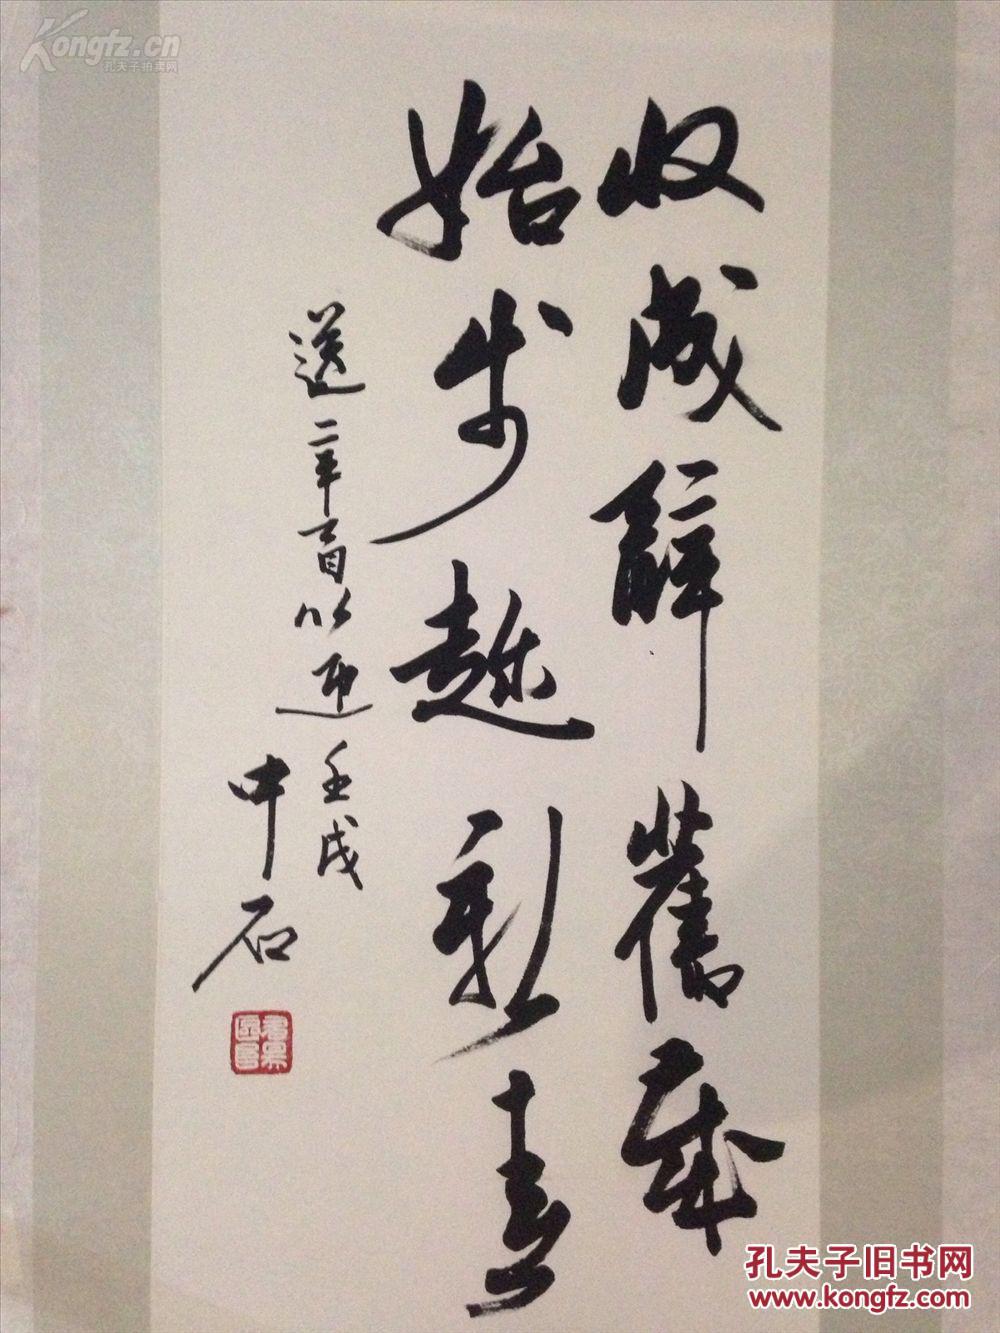 Kongfz.cn
孔夫子拍卖网
收成辭舊歲
始步越新臺
送辛酉以迎壬戌
中石
孔夫子旧书网
www.kongfz.com